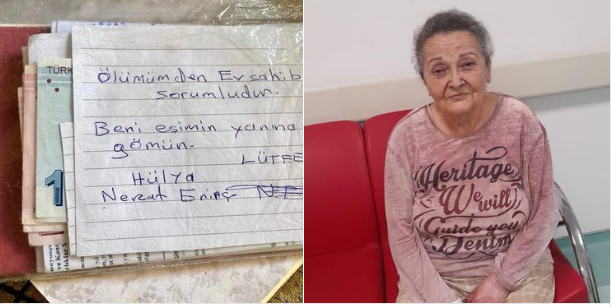 TÜRK
Ölümümden Ev sahib
sorumludur.
Beni eşimin yanına
gömün.
LÜTFE
Hülya
Nevzat
1
Heritage
We
will
Guide you
Denim